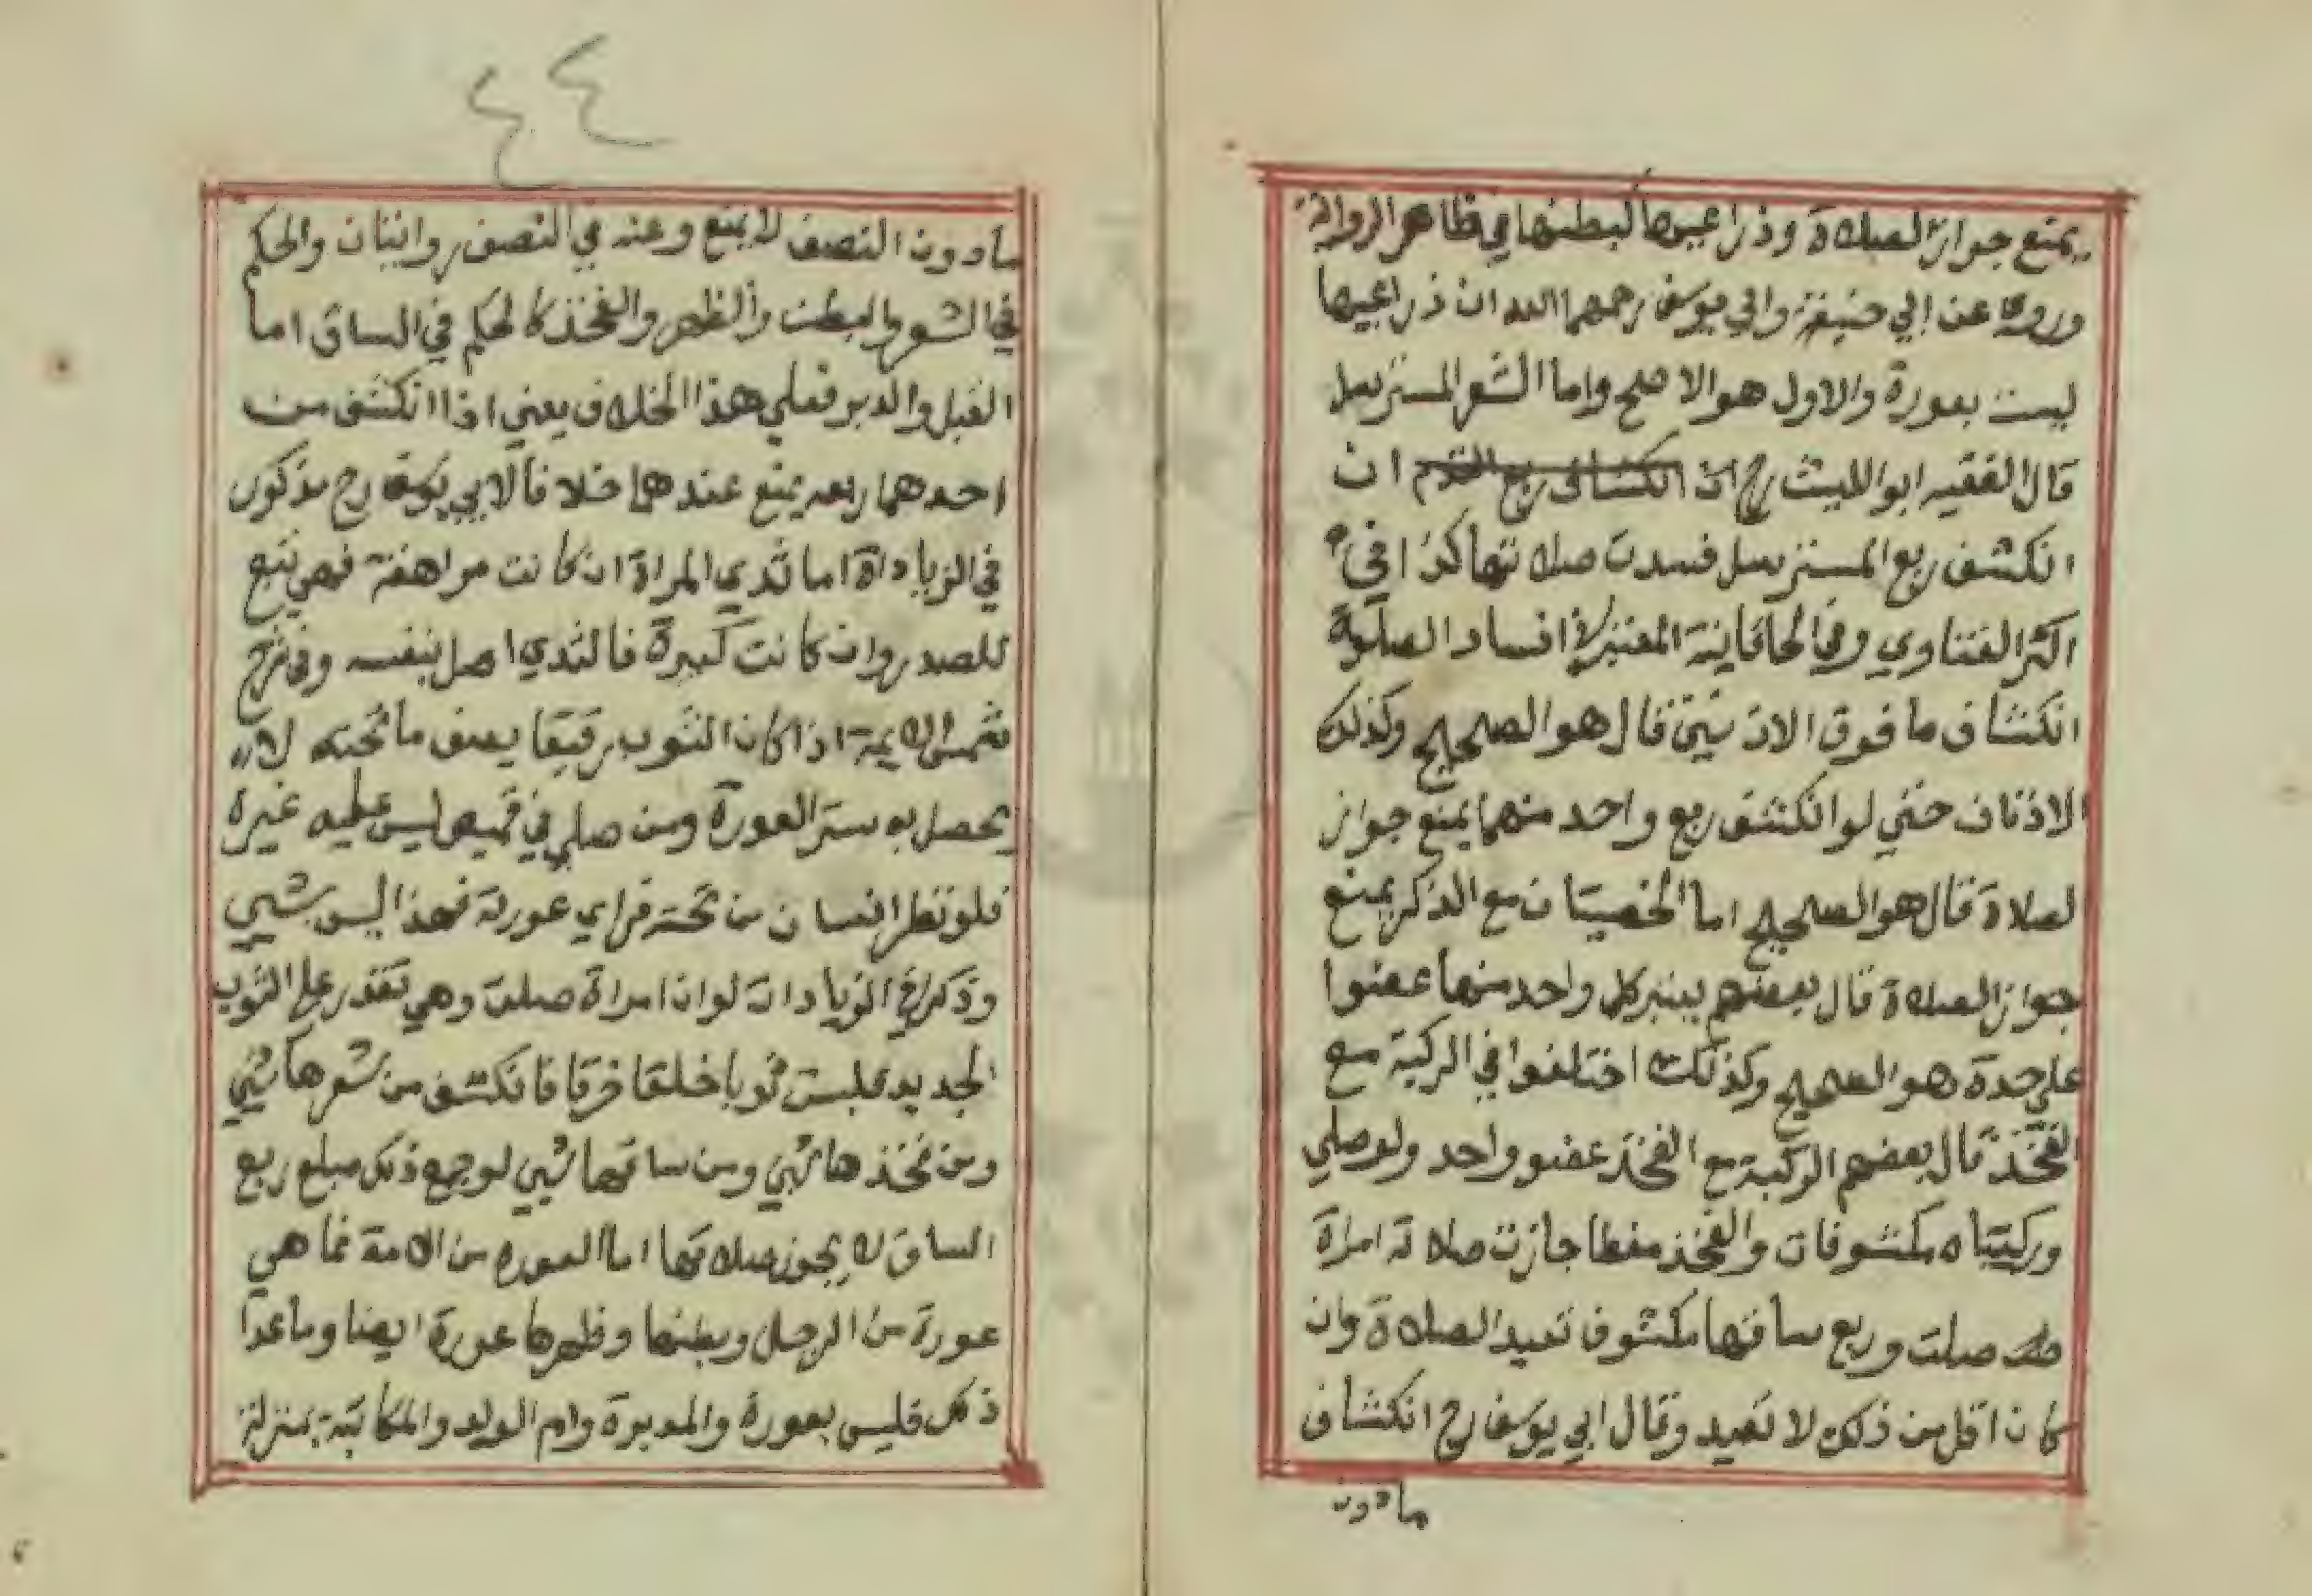 يمنع جواز الصلاة وذراعيها كبطنها في ظاهر الرواية
وروي عن ابي حنيفة وابي يوسف رحمهما الله ان ذراعيها
ليست بعورة والاول هو الاصح واما الشعر المسترسل
قال الفقيه ابو الليث رح ان انكشاف ربع القدم ان
انكشف ربع المسترسل فسدت صلاتها كذا في
اكثر الفتاوي وفي الخاقانية المعتبر في افساد الصلوة
انكشاف ما فوق الاذنين قال هو الصحيح وكذلك
الاذنان حتي لو انكشف ربع واحد منهما يمنع جواز
لصلاة قال هو الصحيح اما الخصيتان مع الذكر يمنع
جواز الصلاة قال بعضهم يعتبر كل واحد منهما عضوا
علي حدة هو الصحيح وكذلك اختلفوا في الركبة مع
الفخذ قال بعضهم الركبة مع الفخذ عضو واحد ولو صلي
وركبتاه مكشوفان والفخذ مغطا جازت صلاته امراة
صلت وربع ساقها مكشوف تعيد الصلاة وان
كان اقل من ذلك لا تعيد وقال ابي يوسف رح انكشاف
ما دون
٤٤
ما دون النصف لا يمنع وعنه في النصف روايتان والحكم
في الشعر والبطن والظهر والفخذ كالحكم في الساق اما
القبل والدبر فعلي هذا الخلاف يعني اذا انكشف من
احدهما ربعه يمنع عندهما خلافا لابي يوسف رح مذكور
في الزيادات اما ثدي المراة ان كانت مراهقة فهي تبع
للصدر وان كانت كبيرة فالثدي اصل بنفسه وفي شرح
شمس الايمة اذا كان الثوب رقيقا يصف ما تحته لا
يحصل به ستر العورة ومن صلي في قميص ليس عليه غيره
فلو نظر انسان من تحته فراي عورته فهذا ليس بشيي
وذكر في الزيادات لو ان امراة صلت وهي تقدر علي الثوب
الجديد فلبست ثوبا خلقا خرقا فانكشف من شعرها شيي
ومن فخذها شيي ومن ساقها شيي لو جمع ذلك مبلغ ربع
الساق لا يجوز صلاتها اما العورة من الامة فما هي
عورة من الرجل وبطنها وظهرها عورة ايضا وما عدا
ذلك فليس بعورة والمدبرة وام الولد والمكاتبة بمنزلة